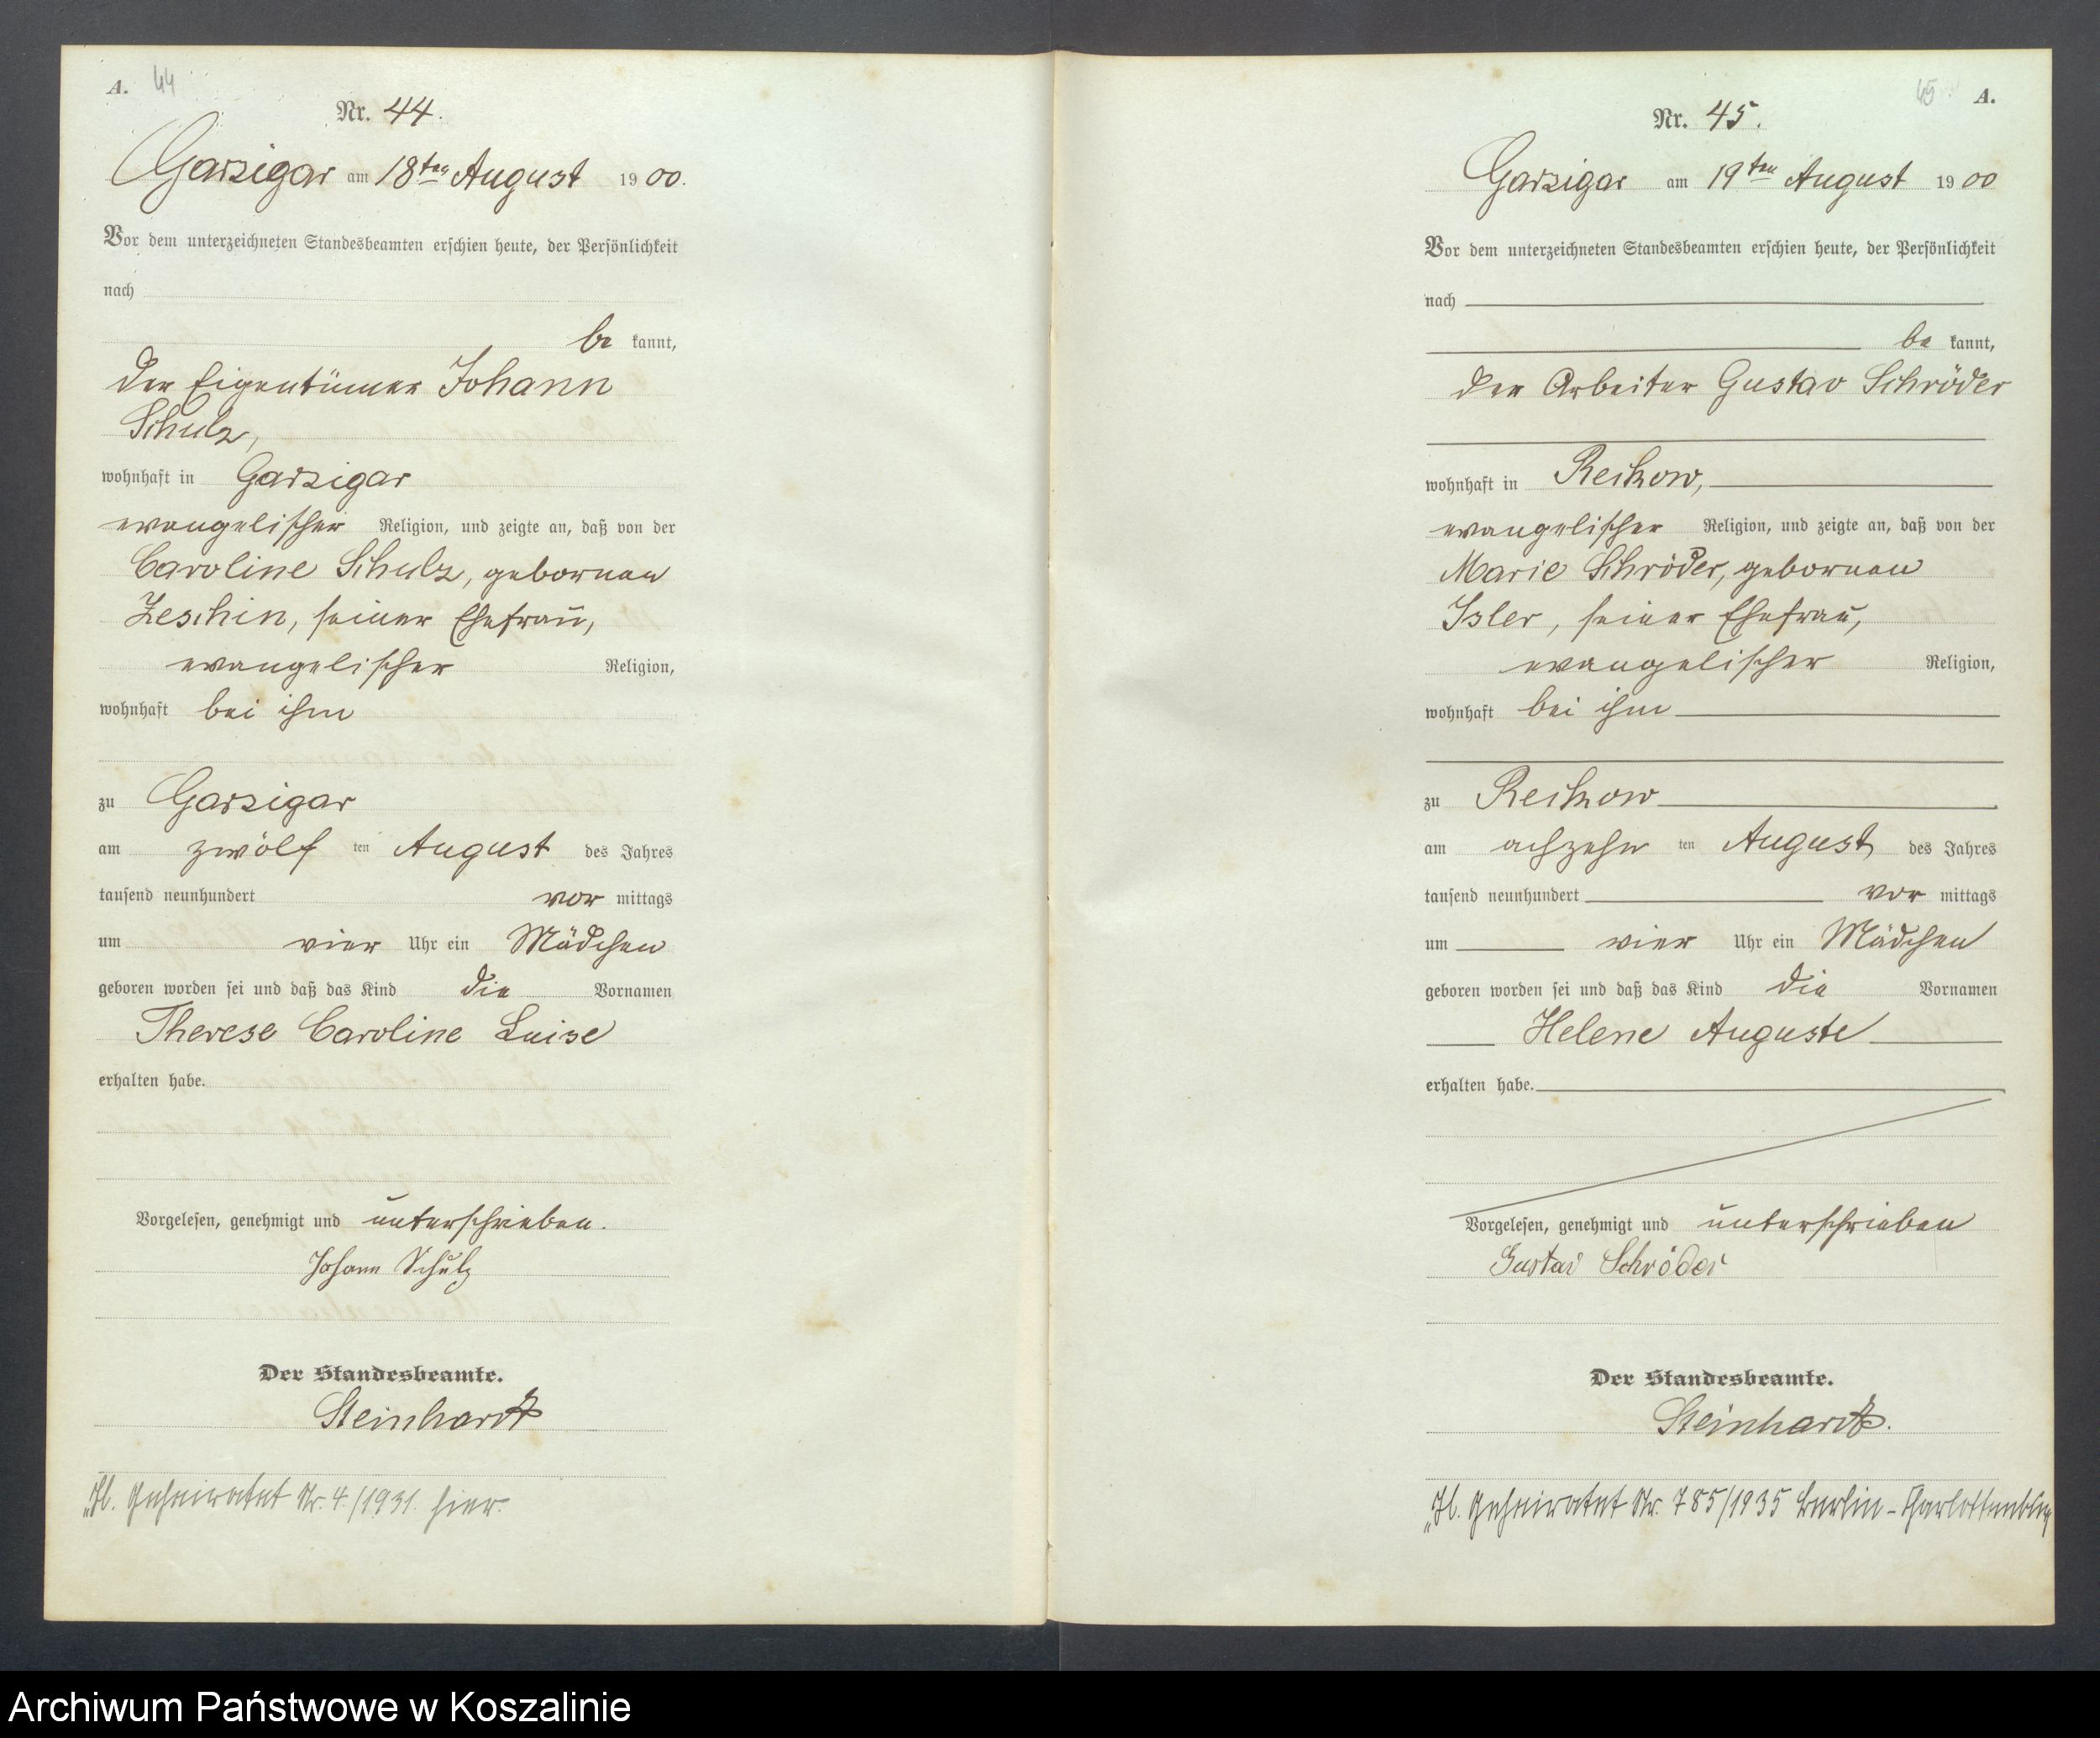 A. 44
Nr. 44.
Garzigar am 18ten August 1900.
Vor dem unterzeichneten Standesbeamten erschien heute, der Persönlichkeit
nach
be kannt,
der Eigentümer Johann
Schulz,
wohnhaft in Garzigar
evangelischer Religion, und zeigte an, daß von der
Caroline Schulz, gebornen
Zeschin, seiner Ehefrau,
evangelischer Religion,
wohnhaft bei ihm
zu Garzigar
am zwölf ten August des Jahres
tausend neunhundert vor mittags
um vier Uhr ein Mädchen
geboren worden sei und daß das Kind die Vornamen
Therese Caroline Luise
erhalten habe.
Vorgelesen, genehmigt und unterschrieben.
Johann Schulz
Der Standesbeamte.
Steinhardt
geheiratet Nr. 4/1931. hier.
45 A.
Nr. 45.
Garzigar am 19ten August 1900
Vor dem unterzeichneten Standesbeamten erschien heute, der Persönlichkeit
nach
be kannt,
der Arbeiter Gustav Schröder
wohnhaft in Reckow,
evangelischer Religion, und zeigte an, daß von der
Marie Schröder, gebornen
Isler, seiner Ehefrau,
evangelischer Religion,
wohnhaft bei ihm
zu Reckow
am achzehn ten August des Jahres
tausend neunhundert vor mittags
um vier Uhr ein Mädchen
geboren worden sei und daß das Kind die Vornamen
Helene Auguste
erhalten habe.
Vorgelesen, genehmigt und unterschrieben
Gustav Schröder
Der Standesbeamte.
Steinhardt.
geheiratet Nr. 785/1935 Berlin-Charlottenburg
Archiwum Państwowe w Koszalinie